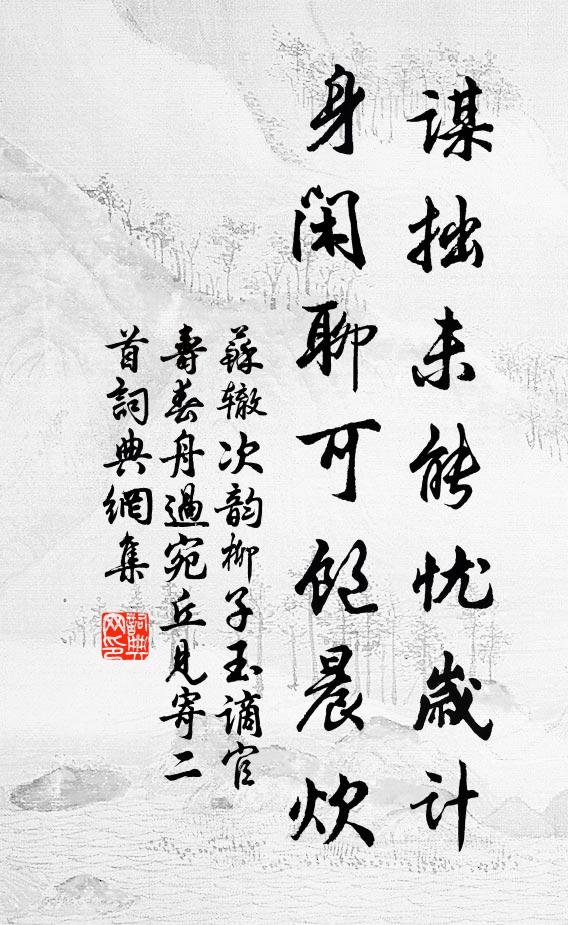 谋拙未能忧岁计
身闲聊可饱晨炊
蘇辙次韵柳子玉谪官
壽春舟過宛丘見寄二
首詞典網集
詞典
网印